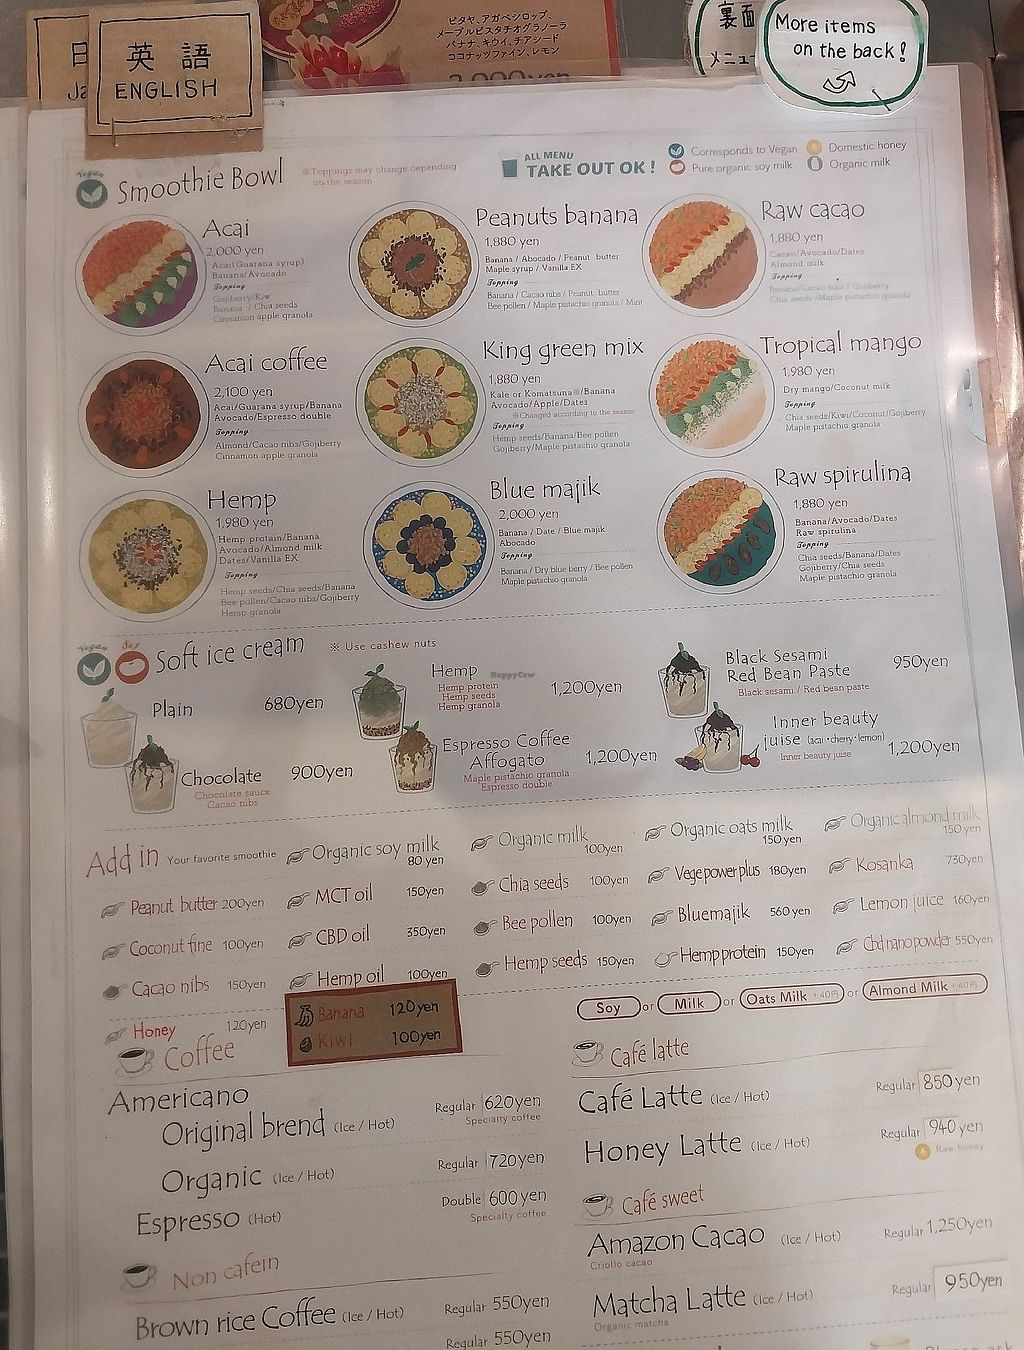 日
Ja
英語
ENGLISH
ピタヤ、アガベシロップ、
メープルピスタチオグラノーラ
バナナ、キウイ、チアシード
ココナッツファイン、レモン
2,000yen
裏面
メニュー
More items
on the back!
Vegan
Smoothie Bowl
※Toppings may change depending
on the season
ALL MENU
TAKE OUT OK !
Corresponds to Vegan
Domestic honey
Pure organic soy milk
Organic milk
Acai
2,000 yen
Acai(Guarana syrup)
Banana/Avocado
Topping
Gojiberry/Kiwi
Banana / Chia seeds
Cinnamon apple granola
Peanuts banana
1,880 yen
Banana / Abocado / Peanut butter
Maple syrup / Vanilla EX
Topping
Banana / Cacao ribs / Peanut butter
Bee pollen / Maple pistachio granola / Mint
Raw cacao
1,880 yen
Cacao/Avocado/Dates
Almond milk
Topping
Banana/Cacao nibs / Gojiberry
Chia seeds /Maple pistachio granola
Acai coffee
2,100 yen
Acai/Guarana syrup/Banana
Avocado/Espresso double
Topping
Almond/Cacao nibs/Gojiberry
Cinnamon apple granola
King green mix
1,880 yen
Kale or Komatsuna※/Banana
Avocado/Apple/Dates
※Changed according to the season
Topping
Hemp seeds/Banana/Bee pollen
Gojiberry/Maple pistachio granola
Tropical mango
1,980 yen
Dry mango/Coconut milk
Topping
Chia seeds/Kiwi/Coconut/Gojiberry
Maple pistachio granola
Hemp
1,980 yen
Hemp protein/Banana
Avocado/Almond milk
Dates/Vanilla EX
Topping
Hemp seeds/Chia seeds/Banana
Bee pollen/Cacao nibs/Gojiberry
Hemp granola
Blue majik
2,000 yen
Banana / Date / Blue majik
Abocado
Topping
Banana / Dry blue berry / Bee pollen
Maple pistachio granola
Raw spirulina
1,880 yen
Banana/Avocado/Dates
Raw spirulina
Topping
Chia seeds/Banana/Dates
Gojiberry/Chia seeds
Maple pistachio granola
Vegan Soy
Soft ice cream
※ Use cashew nuts
Plain 680yen
Chocolate 900yen
Chocolate sauce
Cacao nibs
Hemp 1,200yen
Hemp protein
Hemp seeds
Hemp granola
HappyCow
Espresso Coffee
Affogato 1,200yen
Maple pistachio granola
Espresso double
Black Sesami
Red Bean Paste 950yen
Black sesami / Red bean paste
Inner beauty
juise (acai・cherry・lemon) 1,200yen
Inner beauty juise
Add in Your favorite smoothie
Organic soy milk 80 yen
Organic milk 100yen
Organic oats milk 150yen
Organic almond milk 150yen
Peanut butter 200yen
MCT oil 150yen
Chia seeds 100yen
Vege power plus 180yen
Kosanka 730yen
Coconut fine 100yen
CBD oil 350yen
Bee pollen 100yen
Bluemajik 560yen
Lemon juice 160yen
Cacao nibs 150yen
Hemp oil 100yen
Hemp seeds 150yen
Hemp protein 150yen
Cbd nano powder 550yen
Honey 120yen
Banana 120yen
Kiwi 100yen
Soy or Milk or Oats Milk +40円 or Almond Milk +40円
Coffee
Americano
Original brend (Ice / Hot) Regular 620yen
Specialty coffee
Organic (Ice / Hot) Regular 720yen
Espresso (Hot) Double 600yen
Specialty coffee
Non cafein
Brown rice Coffee (Ice / Hot) Regular 550yen
Regular 550yen
Café latte
Café Latte (Ice / Hot) Regular 850yen
Honey Latte (Ice / Hot) Regular 940yen
Raw honey
Café sweet
Amazon Cacao (Ice / Hot) Regular 1,250yen
Criollo cacao
Matcha Latte (Ice / Hot) Regular 950yen
Organic matcha